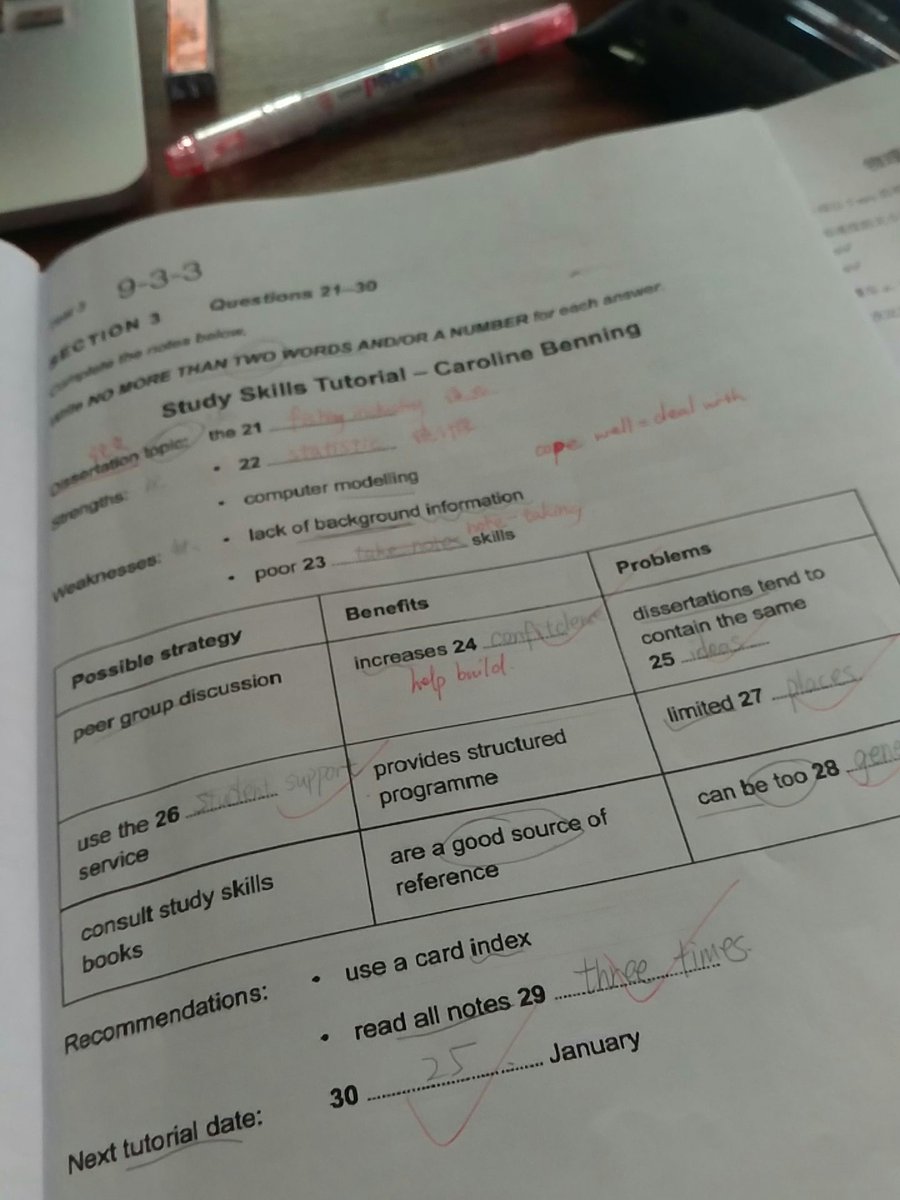 9-3-3
SECTION 3 Questions 21–30
Complete the notes below.
Write NO MORE THAN TWO WORDS AND/OR A NUMBER for each answer.
Study Skills Tutorial – Caroline Benning
Dissertation topic: the 21 fishing industry
Strengths: • 22 statistic
cope well = deal with
• computer modelling
Weaknesses: • lack of background information
note-taking
• poor 23 take notes skills
Possible strategy Benefits Problems
peer group discussion increases 24 dissertations tend to contain the same 25 ideas
help build
use the 26 student support service provides structured programme limited 27 places
consult study skills books are a good source of reference can be too 28 gene
Recommendations: • use a card index
• read all notes 29 three times
Next tutorial date: 30 25 January